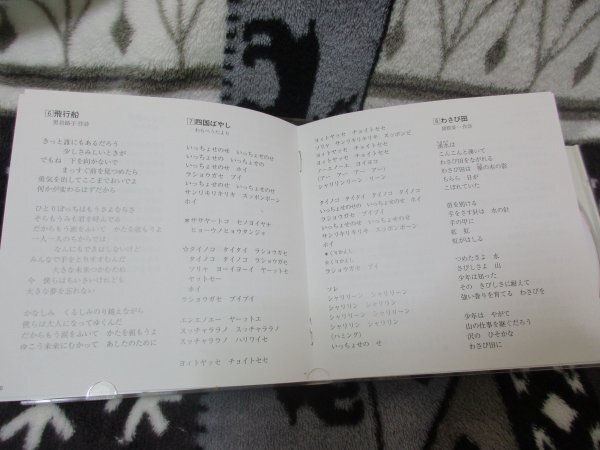 6 飛行船
きっと誰にもあるだろう
少しさみしいときが
でもね 下を向かないで
まっすぐ前を見つめたら
勇気を出してここまでおいでよ
何かが変わるはずだから
ひとりぼっちはもうさよならさ
そらもうみも君を呼んでる
だからもう涙をふいて かたを組もうよ
一人一人の力からでは
なんにもできはしないけど
みんなで手をとりすすむんだ
大きな未来つかむため
今 僕らはちいさいけれども
大きな夢を忘れない
かなしみ くるしみのり越えながら
僕らは大人になってゆくんだ
だからもう涙をふいて かたを組もうよ
ゆこう未来にむかって あしたのために
7 四国ばやし
わらべうたより
いっちょせのせ いっちょせのせ
いっちょせのせ いっちょせのせ
いっちょせのせ ホイ
ラショウガセ ブイ
サンリキリキリキ スッポンポーン
ホイ
ヒョーウノヒョウタンジャ
タイノコ タイタイ ラショウガセ
タイノコ タイコ ラショウガセ
ソリャ ヨーイヨーイ ヤートセ
ヤットセー
ホイ
ラショウガセ ブイブイ
エンエノエー ヤーットエ
スッチャララノ スッチャララノ
スッチャララノ ハリワイセ
ヨイトヤッセ チョイトセセ
ヨイトヤッセ チョイトセセ
ソリャ サンリキリキリキ スッポンピ
ヨイトヤッセ チョイトセセ
ヨイトヤッセ チョイトセセ
(アー アー アー アー)
シャリリンリーン リーン
タイノコ タイタイ タイノコ タイコ
いっちょせのせの いっちょせのせ
ラショウガセ ブイブイ
いっちょせのせの いっちょせのせ
サンリキリキリキ スッポンポーン
ホイ
*くりかえし
ラショウガセ ブイ
ソレ
シャリリーン シャリリーン
シャリリン シャリリン
シャリリーン シャリリーン
シャリリン シャリリン
(ハミング)
いっちょせのせ
8 わさび田
清水は
こんこんと湧いて
わさび田をながれる
わさび田は 雫の水の宿
ちらら 日が
こぼれていた
苗を別ける
手をさす刺は 水の針
手の甲に
虹 虹
虹がはしる
つめたさよ 水
さびしさよ 山
少年は知った
その きびしさに耐えて
強い香りを育てる わさびを
少年は やがて
山の仕事を継ぐだろう
沢の ひそかな
わさび田に